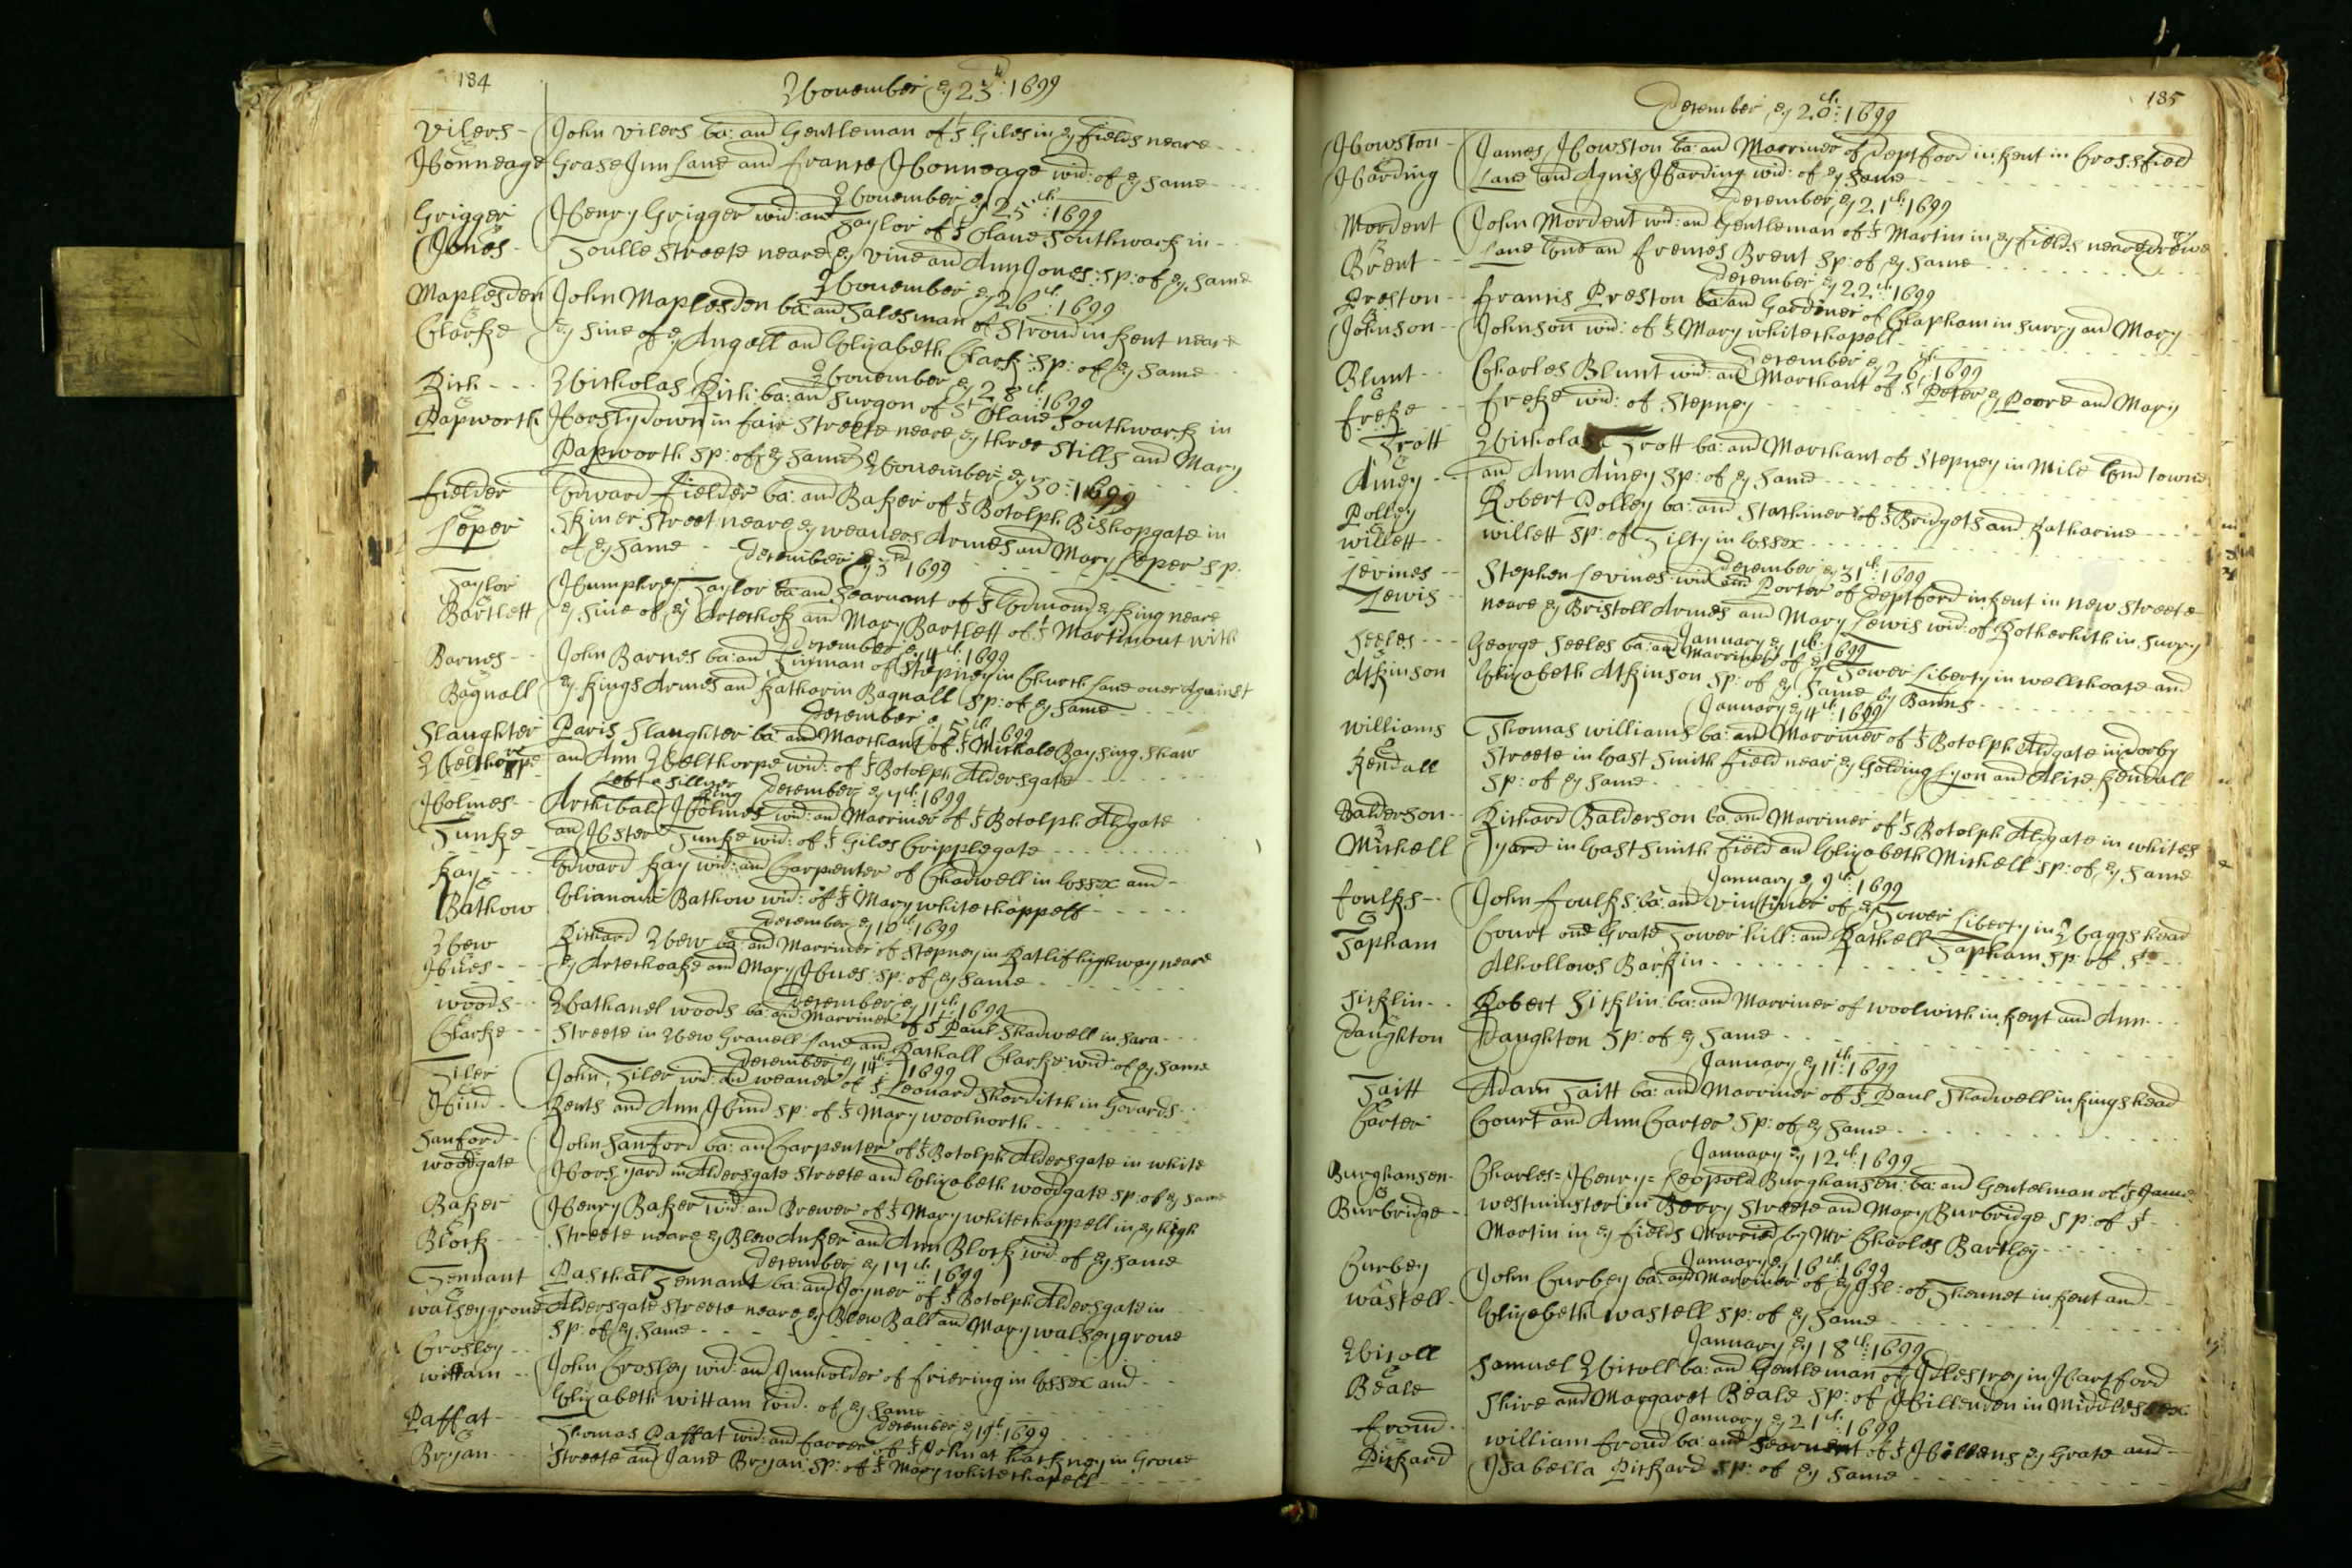 184
November ey 23th: 1699
Vilers - John Vilers ba: and Gentleman of St Giles in ey fields neare
Honneage Grase Inn Lane and france Honneage wid: of ey same
November ey 25th: 1699
Grigger Henry Grigger wid: and Taylor of St Olaue Southwark in
Jones - Toulle Streete neare ey Vine and Ann Jones: sp: of ey same
November ey 26th: 1699
Maplesden John Maplesden ba: and Salesman of Stroud in Kent neare
Clarke ey Sine of ey Angell and Elizabeth Clark: sp: of ey same
November ey 28th: 1699
Rich - - - Nicholas Rich: ba: an Surgon of St Olaue Southwark in
Papworth Horslydown in fair Streete neare ey three Stills and Mary
Papworth sp: of ey same November ey 30: 1699
fielder Edward fielder ba: and Baker of St Botolph Bishopgate in
Leper Skiner Street neare ey weauers Armes and Mary Leper sp:
of ey same - - December ey 3rd 1699
Taylor Humphrey Taylor ba: and Searuant of St Edmond ey King neare
Bartlett ey Sine of ey Artechok and Mary Bartlett of St Martin out with
December ey 4th: 1699
Barnes - - John Barnes ba: and Tinman of Stepney in Church Lane ouer Against
Bagnall ey Kings Armes and Katharin Bagnall sp: of ey same
December ey 5th 1699
Slaughter Paris Slaughter ba: and Marchant of St Mickale Baysing Shaw
Nelthorpe and Ann Nelthorpe wid: of St Botolph Aldersgate
Left a Silluer Ring December ey 7th: 1699
Holmes - - Archibald Holmes wid: and Marriner of St Botolph Aldgate
Tunke and Hester Tunke wid: of St Giles Cripplegate
Kay - - - Edward Kay wid: an Carpenter of Chadwell in Essex and -
Bathow Elianour Bathow wid: of St Mary whitechappell
December ey 10th: 1699
New Richard New ba: and Marriner of Stepney in Ratlif highway neare
Hues - - - ey Artechoake and Mary Hues: sp: of ey same
December ey 11th: 1699
woods - - Nathanel woods ba: and Marriner of St Paul Shadwell in Sara
Clarke - - Streete in New Grauell Lane and Rachall Clarke wid: of ey same
December ey 14th: 1699
Tiler John Tiler wid: and weauer of St Leonard Shorditch in Gerards
Hind - Rents and Ann Hind sp: of St Mary woolnorth
Sanford - John Sanford ba: an Carpenter of St Botolph Aldersgate in white
woodgate Hors yard in Aldersgate Streete and Elizabeth woodgate sp: of ey same
Baker Henry Baker wid: and Brewer of St Mary whitechappell in ey high
Block - - - Streete neare ey Blew Anker and Ann Block wid: of ey same
December ey 17th: 1699
Tennant Paschal Tennant ba: and Joyner of St Botolph Aldersgate in
walseygroue Aldersgate Streete neare ey Blew Ball and Mary walseygroue
sp: of ey same
Crosley - - John Crosley wid: and Innholder of friering in Essex and
wittam - - Elizabeth wittam wid: of ey same
December ey 19th: 1699
Paffat Thomas Paffat wid: and farrer of St John at hackney in Groue
Bryan - - Streete and Jane Bryan: sp: of St Mary whitechapell
185
December ey 20th: 1699
Howston - James Howston ba: an Marriner of Deptford in Kent in Crosfield
Harding Lane and Agnis Harding wid: of ey same
December ey 21th: 1699
Mordent John Mordent wid: and Gentleman of St Martin in ey fields neare
Brent - - Lane End an frences Brent sp: of ey same
December ey 22th: 1699
Preston - - francis Preston ba: and Gardiner of Clapham in Surry and Mary
Johnson - - Johnson wid: of St Mary whitechapell
December ey 26th: 1699
Blunt - - Charles Blunt wid: and Marchant of St Peter ey Poore and Mary
freke - - freke wid: of Stepney
Trott Nicholas Trott ba: and Marchant of Stepney in Mile End towne
Amey - - and Ann Amey sp: of ey same
Polley Robert Polley ba: and Stathiner of St Bridgets and Katharine
willett - - willett sp: of Tilty in Essex
December ey 31th: 1699
Levines - - Stephen Levines wid and Porter of Deptford in Kent in New Streete
Lewis - - neare ey Bristoll Armes and Mary Lewis wid: of Rotherhith in Surry
January ey 1th: 1699
Seeles - - - George Seeles ba: and Marriner of ey Tower Liberty in wellchoase and
Atkinson Elizabeth Atkinson sp: of ey same by Banns
January ey 4th: 1699
williams Thomas williams ba: and Marriner of St Botolph Aldgate in dorby
Kendall Streete in East Smith field near ey Golding Lyon and Alice Kendall
sp: of ey same
Balderson - - Richard Balderson ba: and Marriner of St Botolph Aldgate in whites
Michell yard in East Smith field and Elizabeth Michell sp: of ey same
January ey 9th: 1699
foulks - - John foulks ba: and Vintiner of ey Tower Liberty in Naggs head
Tapham Court one Grate Tower hill: and Rachell Tapham sp: of St
Alhollows Barkin
Sicklin - - Robert Sicklin: ba: and Marriner of woolwich in Kent and Ann
Daughton Daughton sp: of ey same
January ey 11th: 1699
Taitt Adam Taitt ba: and Marriner of St Paul Shadwell in Kings head
Carter Court and Ann Carter sp: of ey same
January ey 12th: 1699
Burghansen - Charles = Henry = Leopold Burghansen: ba: and Gentelman of St James
Burbridge - westminster in Berry Streete and Mary Burbridge sp: of St
Martin in ey fields Married by Mr Charles Bartley
January ey 16th: 1699
Curbey John Curbey ba: and Marriner of ey Isl: of Thennet in Kent and
wastell - Elizebeth wastell sp: of ey same
January ey 18th: 1699
Nicoll Samuel Nicoll ba: and Gentleman of Idlestrey in Hartford
Beale Shire and Margaret Beale sp: of Hillenden in Middlessex
January ey 21th: 1699
froud - - william froud ba: and Searuant of St Hillens ey Grate and
Pickard Isabella Pickard sp: of ey same